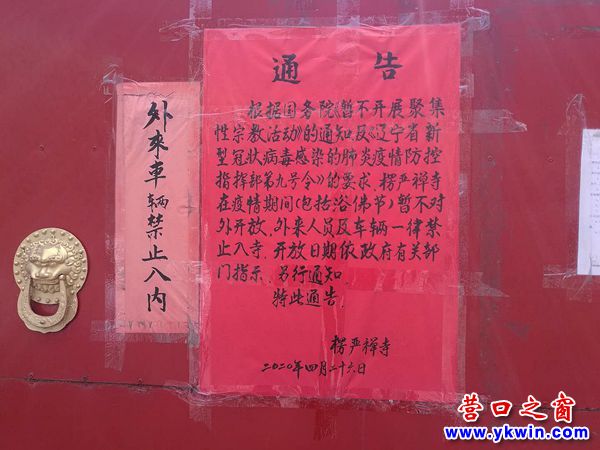 外来車辆禁止入内
通告
根据国务院《暂不开展聚集
性宗教活动》的通知及《辽宁省新
型冠状病毒感染的肺炎疫情防控
指挥部第九号令》的要求.楞严禅寺
在疫情期间(包括浴佛节)暂不对
外开放.外来人员及车辆一律禁
止入寺.开放日期依政府有关部
门指示.另行通知.
特此通告.
楞严禅寺
二〇二〇年四月二十六日
营口之窗
www.ykwin.com